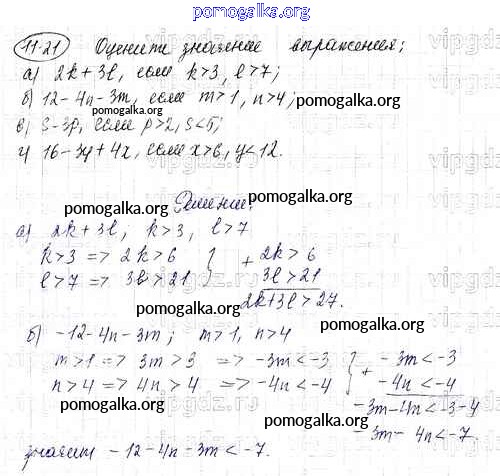 pomogalka.org
11.21 Оцените значение выражения:
а) 2k + 3l, если k > 3, l > 7;
б) 12 - 4n - 3m, если m > 1, n > 4;
pomogalka.org
в) S - 3p, если p > 2, S < 5;
г) 16 - 3y + 4x, если x > 6, y < 12.
pomogalka.org
Решение:
pomogalka.org
а) 2k + 3l; k > 3, l > 7
pomogalka.org
k > 3 => 2k > 6 } + 2k > 6
l > 7 => 3l > 21 3l > 21
2k + 3l > 27.
pomogalka.org
б) -12 - 4n - 3m; m > 1, n > 4
pomogalka.org
m > 1 => 3m > 3 => -3m < -3 } + -3m < -3
n > 4 => 4n > 4 => -4n < -4 -4n < -4
pomogalka.org
-3m - 4n < -3 - 4
-3m - 4n < -7.
pomogalka.org
значит -12 - 4n - 3m < -7.
pomogalka.org